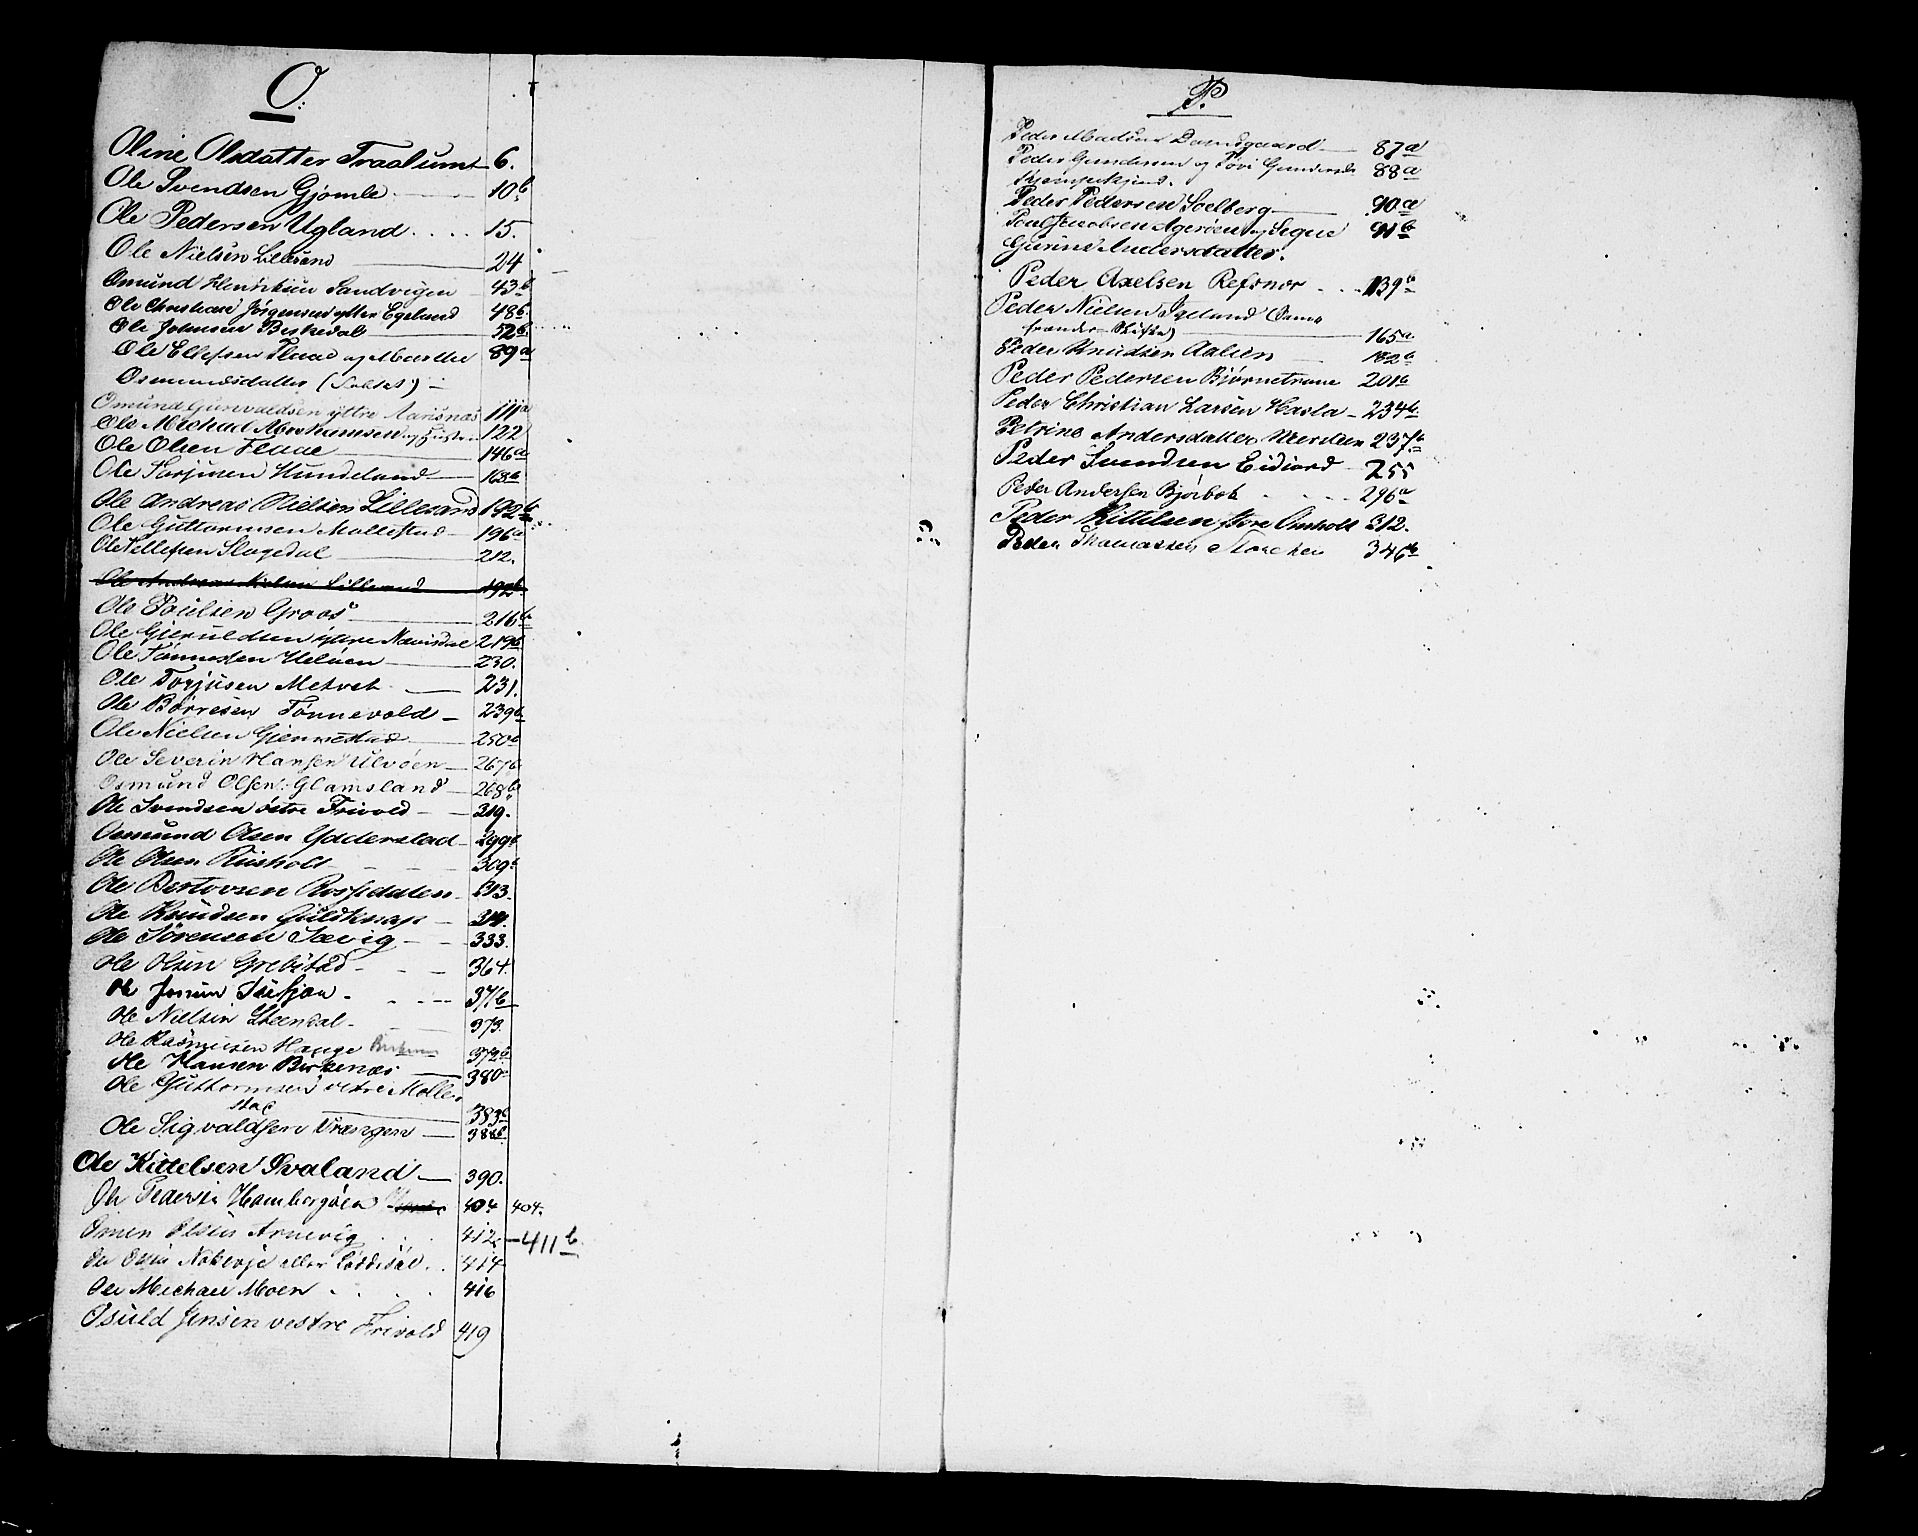 O.
Oline Olsdatter Traalumt 6.
Ole Svendsen Gjømle 10b
Ole Pedersen Ugland 15.
Ole Nielsen Lillesand 24
Osmund Henriksen Sandvigen 43b
Ole Christian Jørgensen yttre Egeland 48b
Ole Johnsen Birkedal 52b
Ole Ellefsen Flaae og Marthe 89a
Osmundsdatter
Omund Gunvaldsen yttre Aarisnæs 111a
Ole Michael Abrahamsen og 122
Ole Olsen Flaae 146a
Ole Torjusen Hundeland 168b
Ole Andreas Nielsen Lillesand 192b
Ole Guttormsen Mollestad 196a
Ole Ellefsen Slagedal 212.
Ole Andreas Nielsen Lillesand 192b
Ole Poulsen Groos 216b
Ole Gjeruldsen yttre Navisdal 219b
Ole Tønnesen Ulvøen 230.
Ole Torjusen Metvet 231.
Ole Børresen Tønnevold 239b
Ole Nielsen Gjennestad 250b
Ole Severin Hansen Ulvöen 267b
Osmund Olsen Glamsland 268b
Ole Svendsen östre Frivold 319.
Osmund Olsen Ydderstad 299b
Ole Olsen Rinsholt 309b
Ole Bertovsen Rosfidalen 313.
Ole Knudsen Guldknap 314.
Ole Sörensen Sævig 333.
Ole Olsen Grebstad 364.
Ole Jensen 371b
Ole Nielsen Steendal 373.
Ole Rasmussen Hauge 372b
Ole Hansen Birkenæs 380
Ole Guttormsen vestre Molle-
stad 383b
Ole Sigvaldsen Vrængen 388b
Ole Kittelsen Svaland 390.
Ole Pedersen Homborgöen 404 404.
Omen Olsen Arnevig 412 411b
Ole Olsen Nokevje eller Löddesöl 414
Ole Michael Moen 416
Osuld Jensen vestre Frivold 419
P.
Peder Madsen Damsgaard 87a
Peder Gundersen og Tovi Gundersd. 88a
Peder Pedersen Soelberg 90a
Poul Jacobsen Agerøen og Signe 91b
Gurine Andersdatter.
Peder Axelsen Refsnør 139b
Peder Nielsen Igelund (Samme
165a
Peder Knudsen Aalien 182b
Peder Pedersen Bjørnetrane 201b
Peder Christian Larsen Hasla 234b
Petrine Andersdatter Merdøen 237b
Peder Svendsen Eidiord 255
Peder Andersen Bjørbok 296a
Peder Kittelsen store Omholt 312.
Peder Thomassen Storeken 346b